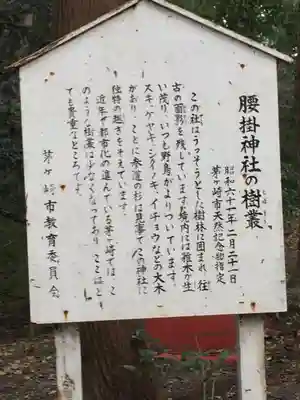 腰掛神社の樹叢
昭和六十一年二月二十一日
茅ヶ崎市天然記念物指定
この社はうっそうとした樹林に囲まれ、往
古の面影を残しています。境内には雑木が生
い茂り、いつも野鳥がよりついています。
スギ、ケヤキ、シダノキ、イチョウなどの大木
があり、ことに参道の杉は見事で、この神社に
独特の趣きをそえています。
近年、都市化の進んでいる茅ヶ崎では、こ
のような樹叢は少なくなっており、ここはと
ても貴重なところです。
茅ヶ崎市教育委員会